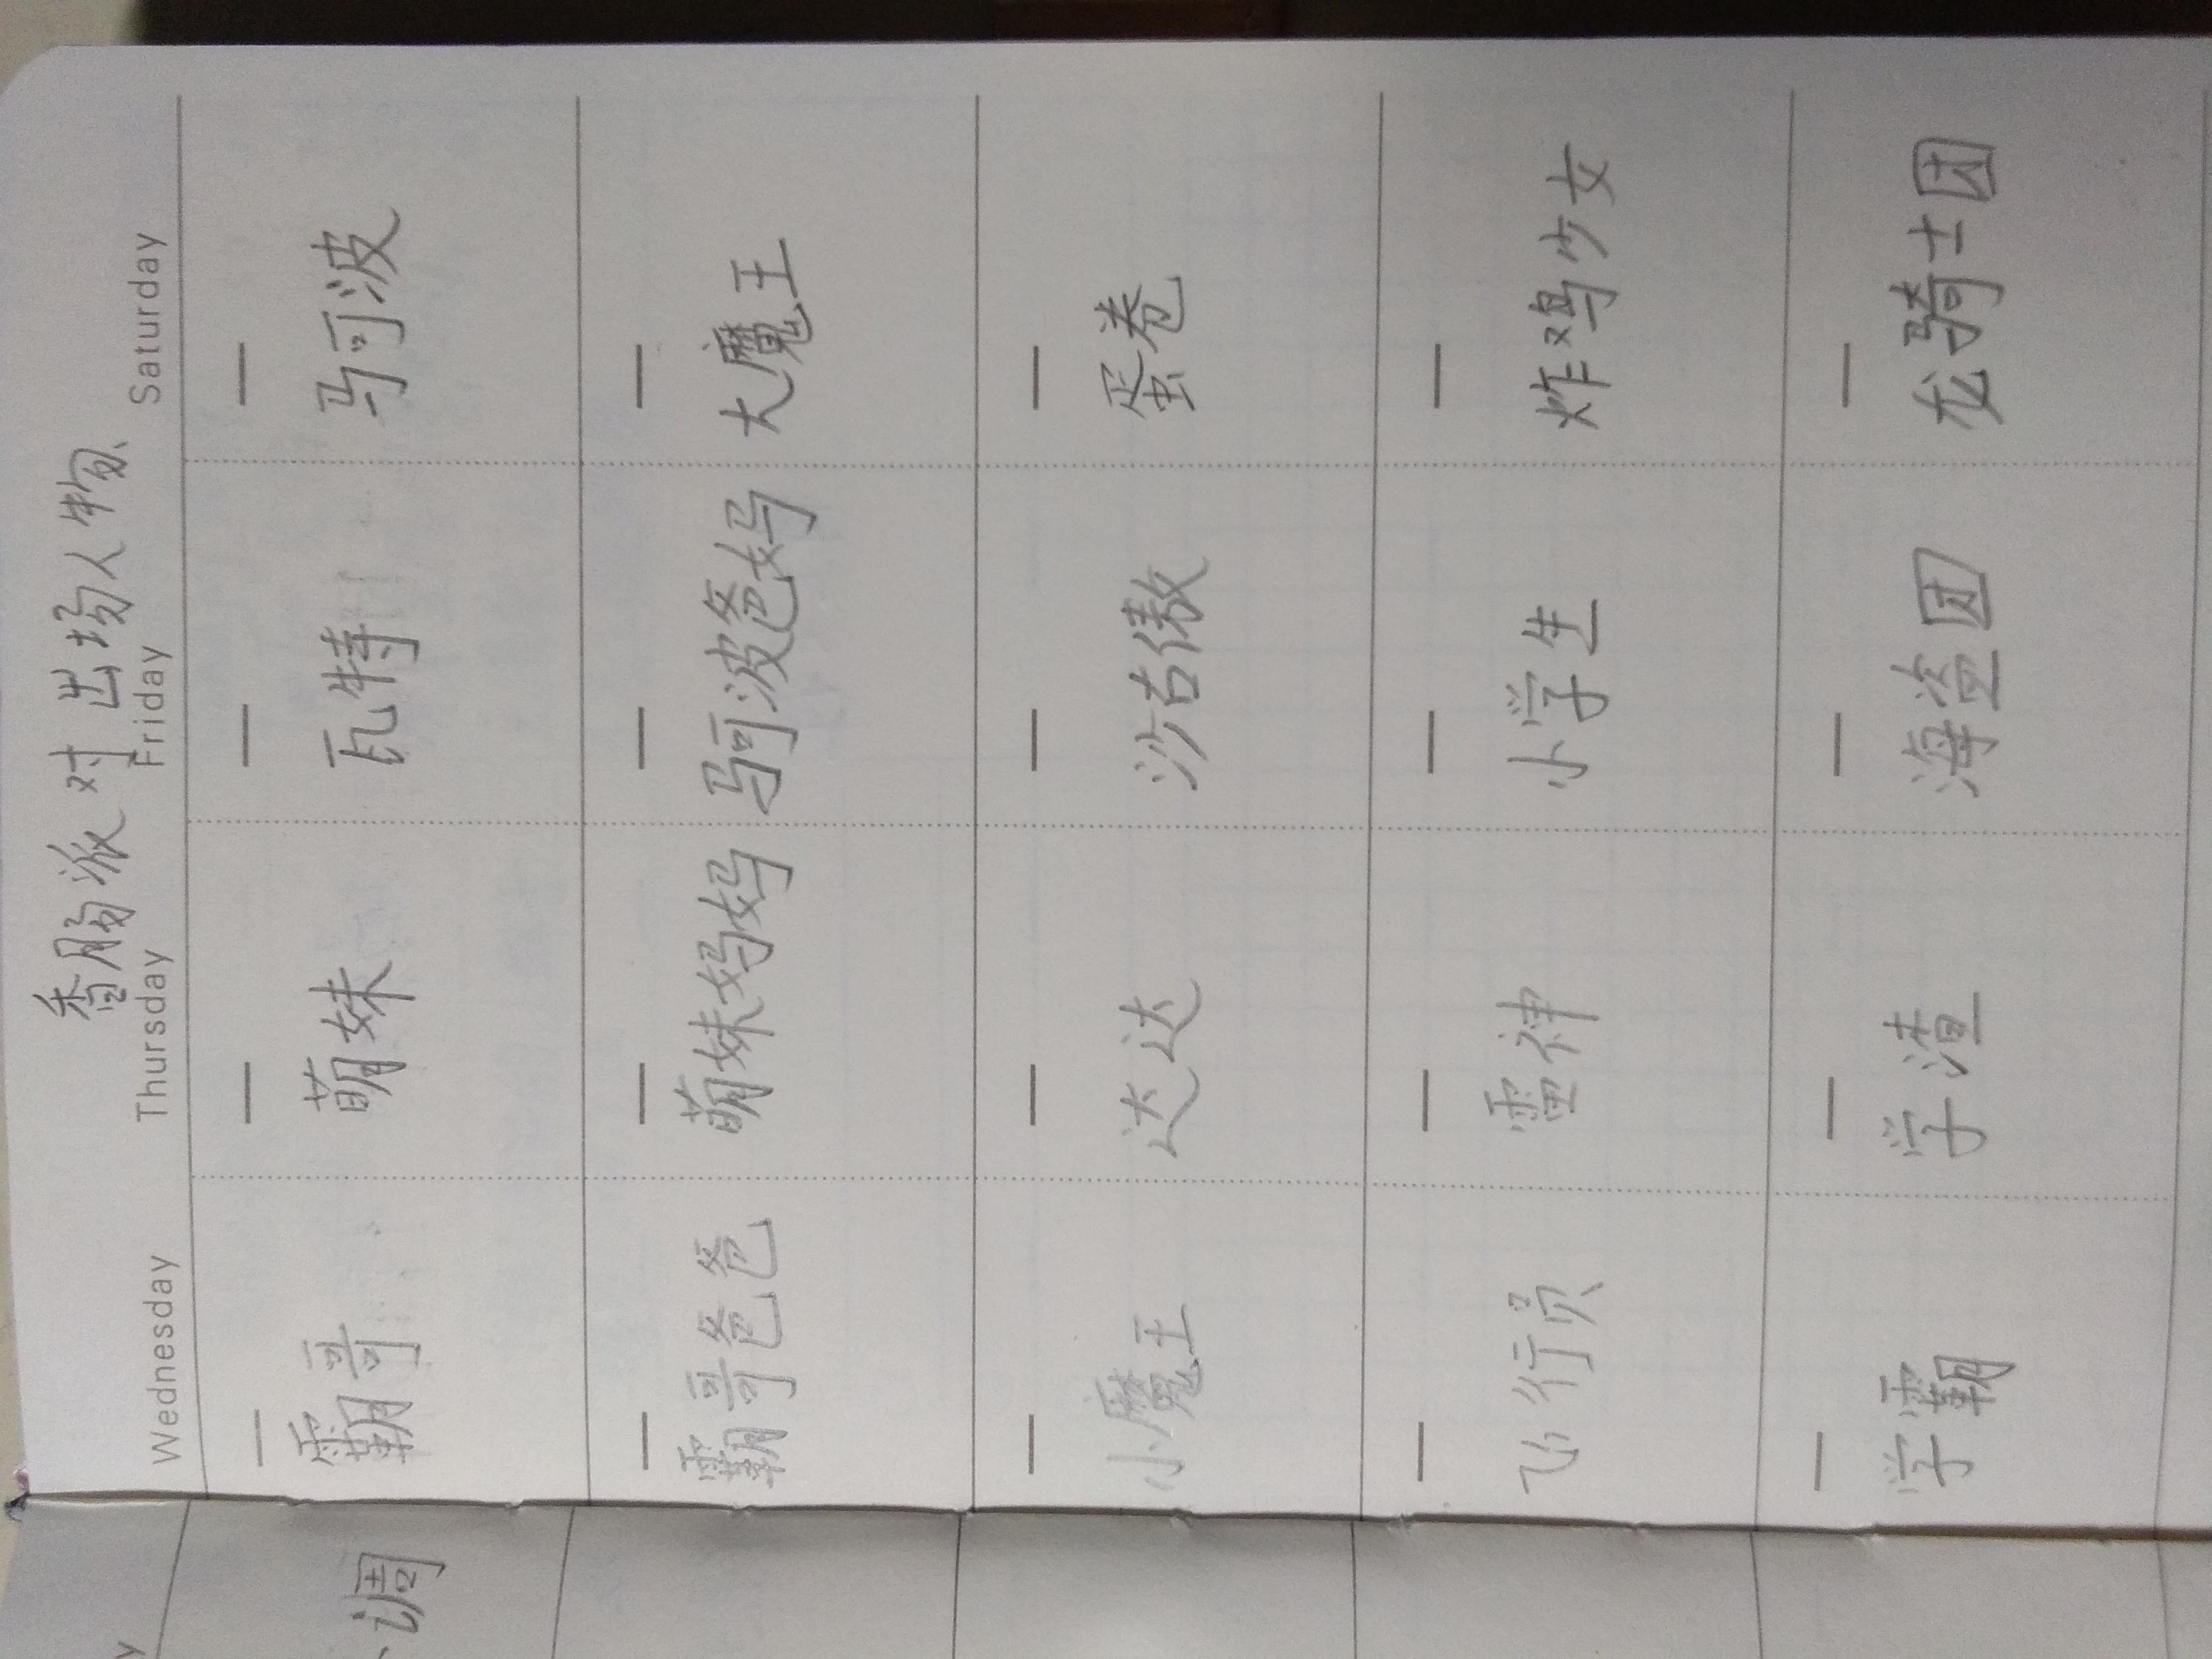 香肠派对出场人物
Wednesday Thursday Friday Saturday
霸哥 萌妹 瓦特 马可波
霸哥爸爸 萌妹妈妈 马可波爸妈 大魔王
小魔王 达达 沙古傲 蛋卷
飞行员 雷神 小学生 炸鸡少女
学霸 学渣 海盗团 龙骑士团
调